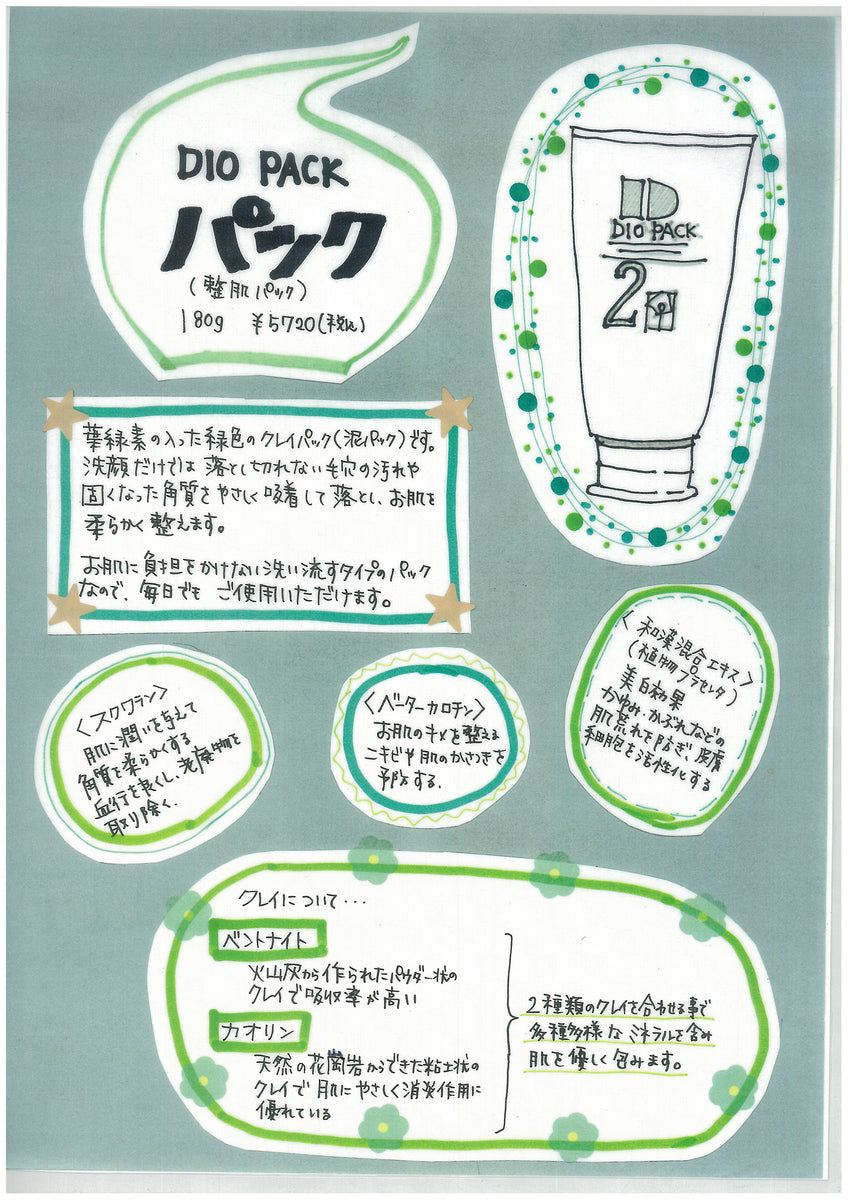 DIO PACK
パック
(整肌パック)
180g ¥5720(税込)
ID
DIO PACK
2
葉緑素の入った緑色のクレイパック(泥パック)です。
洗顔だけでは落とし切れない毛穴の汚れや
固くなった角質をやさしく吸着して落とし、お肌を
柔らかく整えます。
お肌に負担をかけない洗い流すタイプのパック
なので、毎日でもご使用いただけます。
<スクワラン>
肌に潤いを与えて
角質を柔らかくする
血行を良くし、老廃物を
取り除く.
<ベーターカロチン>
お肌のキメを整える
ニキビや肌のかさつきを
予防する.
<和漢混合エキス>
(植物プラセンタ)
美白効果
かゆみ・かぶれなどの
肌荒れを防ぎ、皮膚
細胞を活性化する
クレイについて・・・
ベントナイト
火山灰から作られたパウダー状の
クレイで吸収率が高い
カオリン
天然の花崗岩からできた粘土状の
クレイで肌にやさしく消炎作用に
優れている
2種類のクレイを合わせる事で
多種多様なミネラルを含み
肌を優しく包みます。